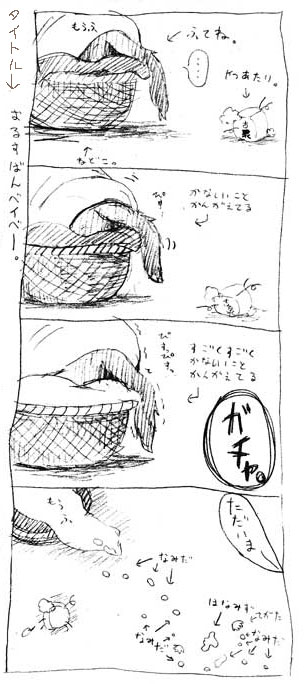 タイトル→
おるすばんベイベー。
もうふ
←ふてね。
・・・
やつあたり。
↓
↑
ねどこ。
ぴす…
かなしいこと
かんがえてる
ぴすぴす。
すごくすごく
かなしいこと
かんがえてる
ガチャ。
ただいま
もうふ
なみだ
はなみず
てがた
なみだ
なみだ